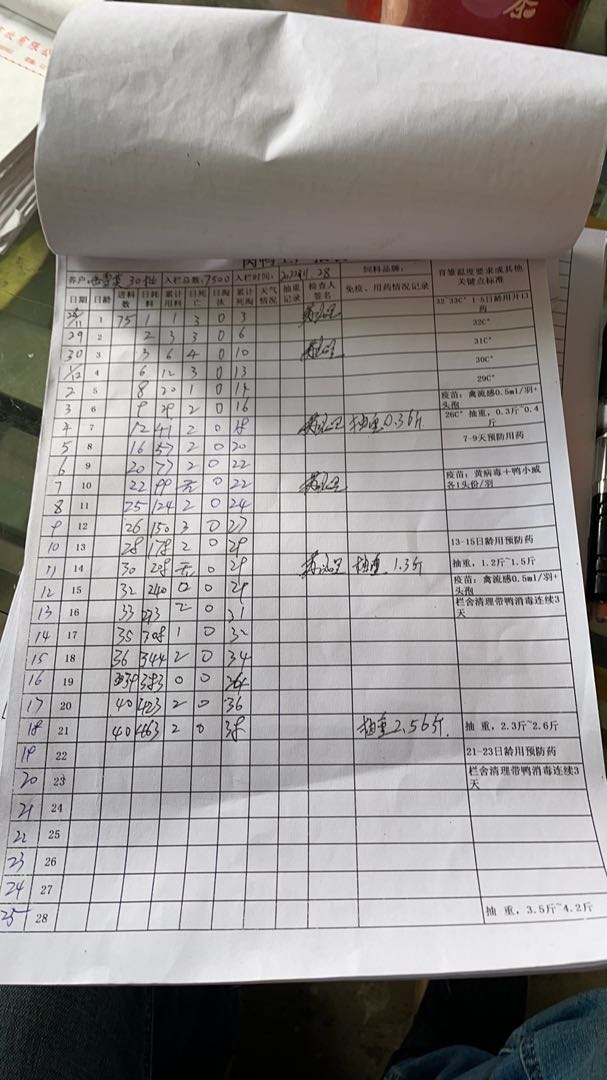 茶
养户: 30批 入栏总数: 7500 入栏时间: 2022.11.28 饲料品牌: 育雏温度要求或其他关键点标准
日期 日龄 进料数 日耗料 累计用料 日死亡 日淘汰 累计死淘 天气情况 抽重记录 检查人签名 免疫、用药情况记录
28/11 1 75 1 1 3 0 3 32~33C° 1-5日龄用开口药
29 2 2 3 3 0 6 32C°
30 3 3 6 4 0 10 31C°
1/12 4 6 12 3 0 13 30C°
2 5 8 20 1 0 14 29C°
3 6 9 29 2 0 16 疫苗: 禽流感0.5ml/羽+头孢
4 7 12 41 2 0 18 抽重0.36斤 26C° 抽重, 0.3斤~0.4斤
5 8 16 57 2 0 20 7-9天预防用药
6 9 20 77 2 0 22
7 10 22 99 无 0 22 疫苗: 黄病毒+鸭小威各1头份/羽
8 11 25 124 2 0 24
9 12 26 150 3 0 27
10 13 28 178 2 0 29 13-15日龄用预防药
11 14 30 208 无 0 29 抽重 1.3斤 抽重, 1.2斤~1.5斤
12 15 32 240 0 0 29 疫苗: 禽流感0.5ml/羽+头孢
13 16 33 273 2 0 31 栏舍清理带鸭消毒连续3天
14 17 35 308 1 0 32
15 18 36 344 2 0 34
16 19 39 383 0 0 34
17 20 40 423 2 0 36
18 21 40 463 2 0 38 抽重2.56斤. 抽 重, 2.3斤~2.6斤
19 22 21-23日龄用预防药
20 23 栏舍清理带鸭消毒连续3天
21 24
22 25
23 26
24 27
25 28 抽 重, 3.5斤~4.2斤